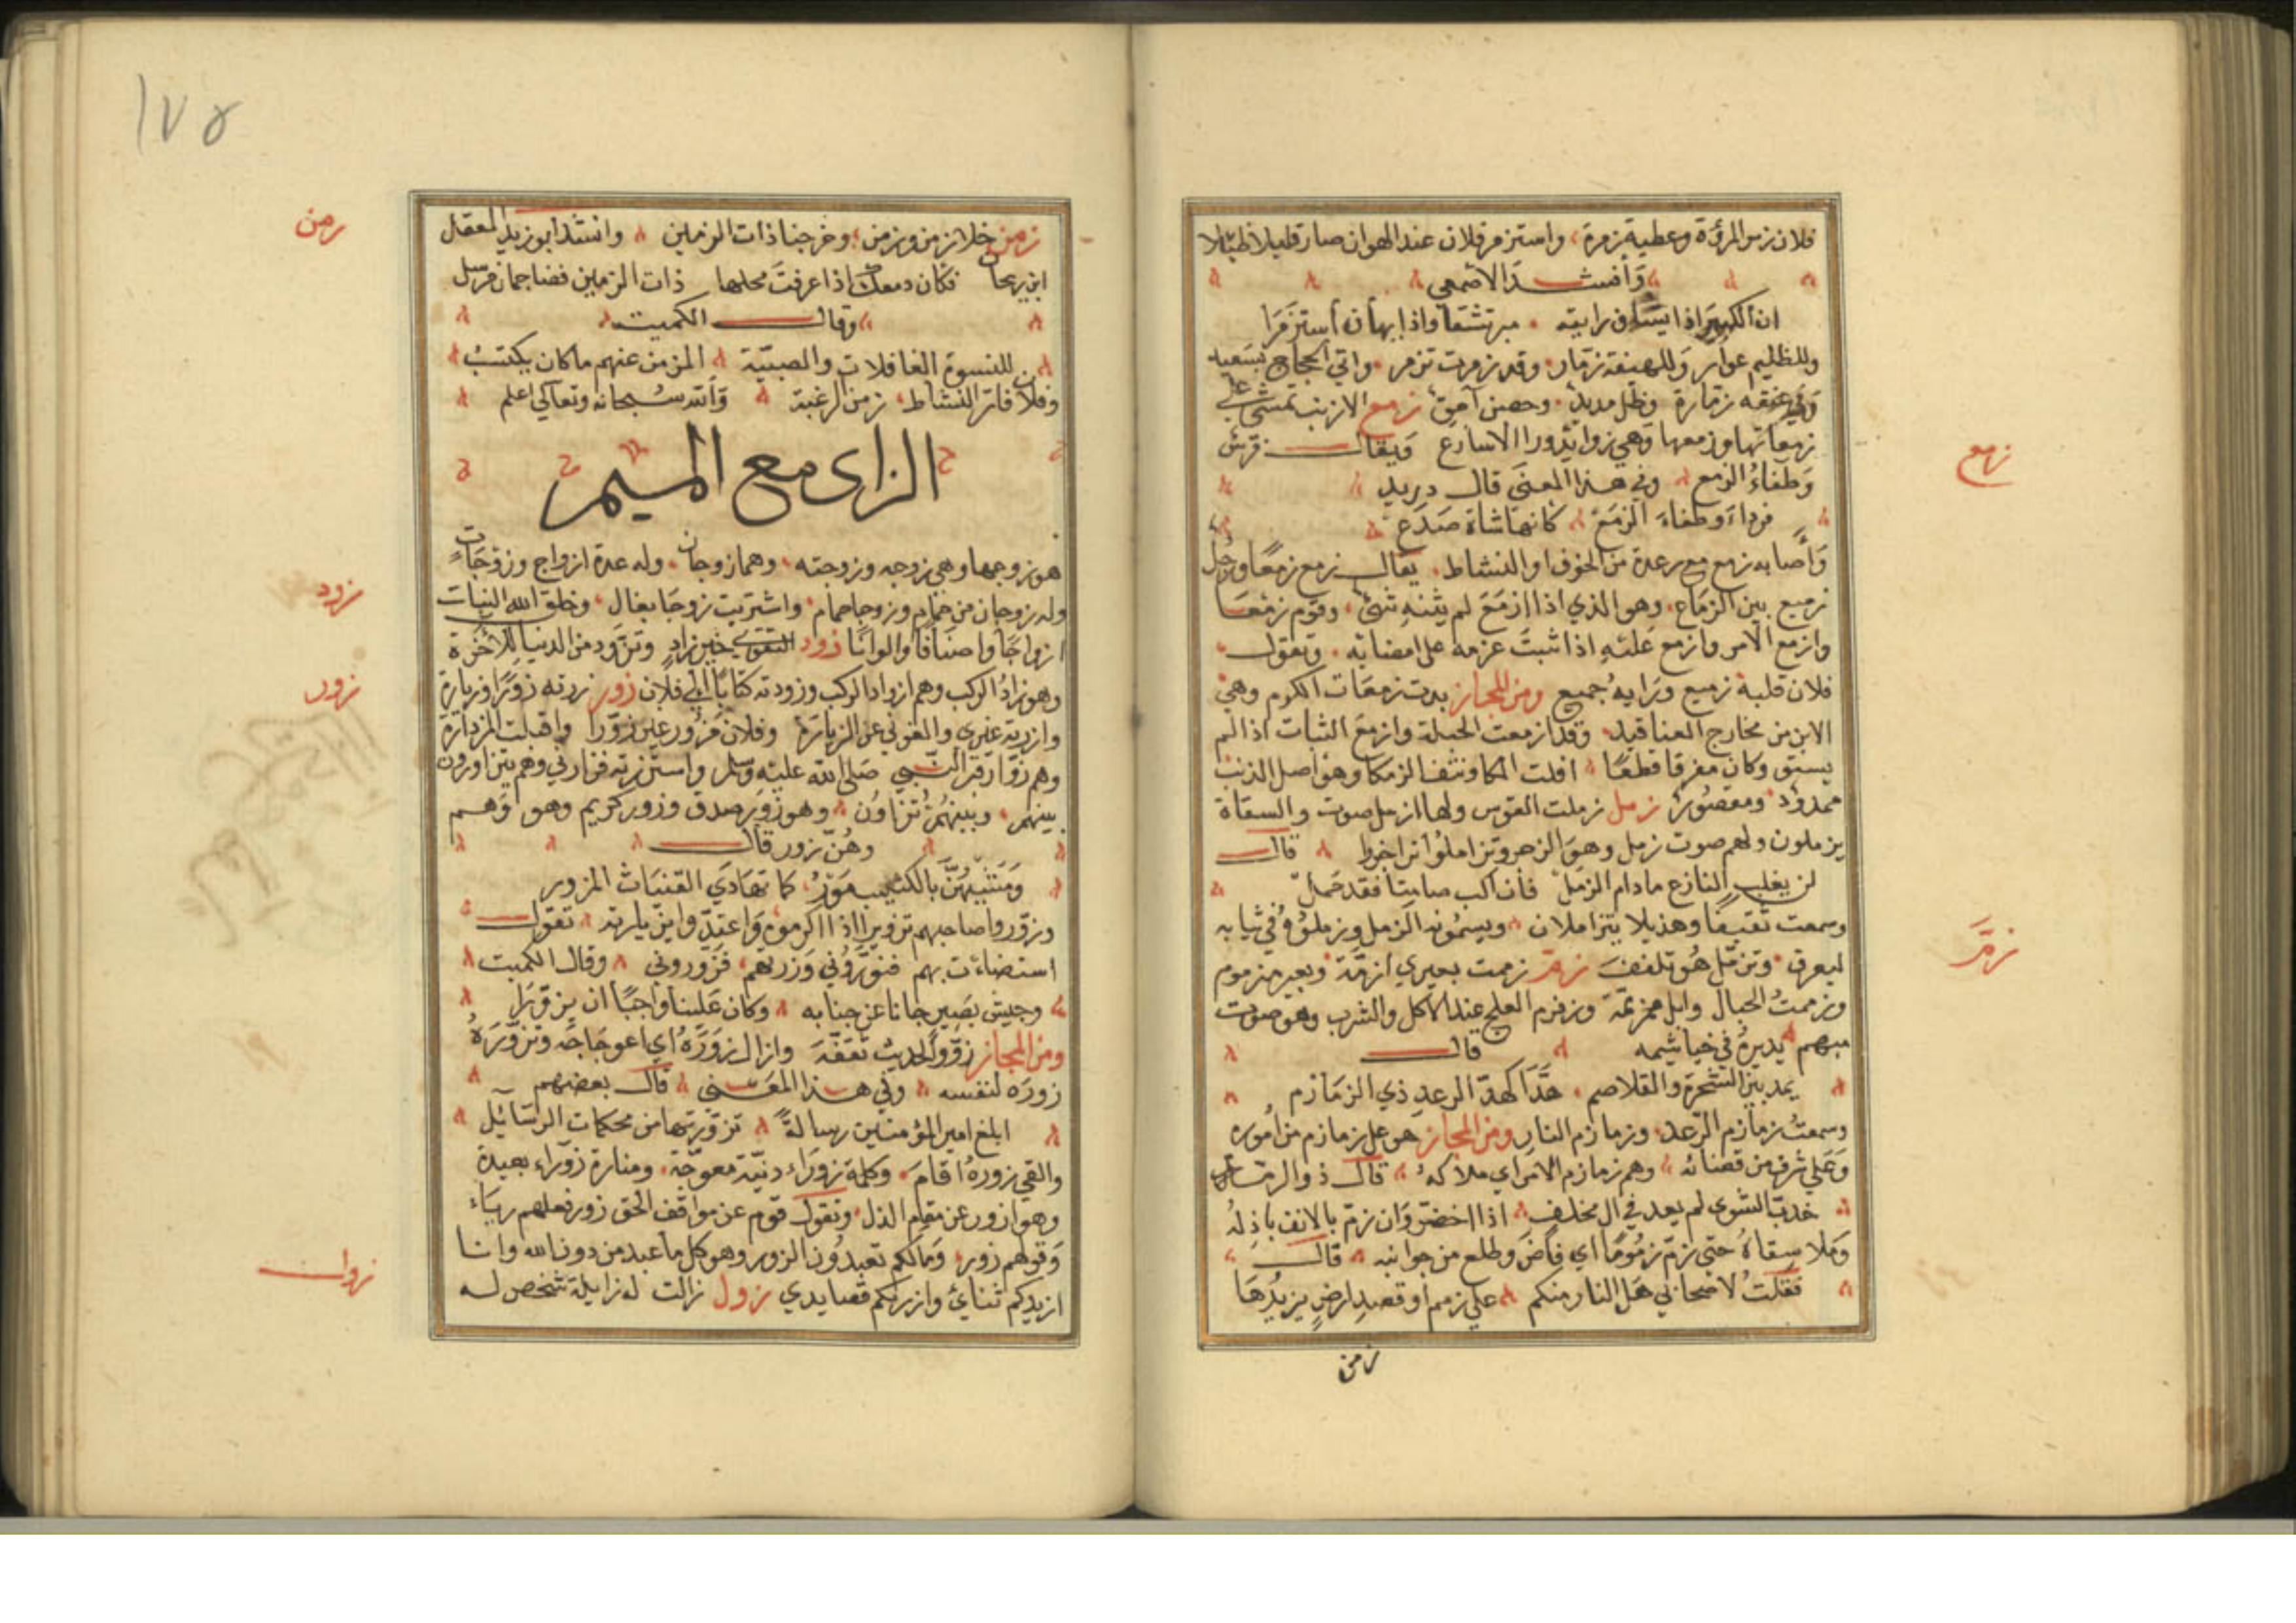 فلان زمر المرؤة وعطية زمرة واستزمر فلان عند الهوان صار قليلا ضئيلا
وانشد الاصمعي
ان الكبير اذا يشاف رايته مبرنشقا واذا يهان استزمرا
وللظليم عرار وللهيقة زمار وقد زمرت تزمر واتي الحجاج بسعيد
وفي عنقه زمارة وظل مديد وحصن امق زمع الارنب تمشي علي
زمعاتها وزمعها وهي زوايد ورا الاسارع ويقال فرس
وطفاء الزمع وفي هذا المعنى قال دريد
فرداء وطفاء الزمع كانها شاة صدع
وأصابه زمع مع رعدة من الخوف او النشاط يقال زمع زمعا ورجل
زميع بين الزماع وهو الذي اذا ازمع لم يثنه شئ وقوم زمعا
وازمع الامر وازمع عليه اذا ثبت عزمه على امضايه وتقول
فلان قلبه زميع ورايه جميع ومن المجاز بدت زمعات الكرم وهي
الابن من مخارج العناقيد وقد ازمعت الحبلة وازمع النبات اذا لم
يستو وكان مفرقا قطعا افلت المكا ونتف الزمكا وهو اصل الذنب
ممدود ومقصور زمل زملت القوس ولها ازمل صوت والسقاة
يزملون ولهم صوت زمل وهو الزهر وتزاملوا تراجزوا قال
لن يغلب النازع مادام الزمل فان اكب صامتا فقد حمل
وسمعت ثقيفا وهذيلا يتزاملان ويسمونه الزمل وزملوه في ثيابه
ليعرق وتزمل هو تلفف زمم زممت بعيري ازمه وبعير مزموم
وزممت الجمال وابل مزممة وزمزم العلج عند الاكل والشرب وهو صوت
مبهم يديره في خياشيمه قال
يمد بين الشجر والقلاصم هدا كهد الرعد ذي الزمازم
وسمعت زمازم الرعد وزمازم النار ومن المجاز هو على زمازم من اموره
وعلي شرف من قضائه وهم زمازم الامر اي ملاكه قال ذو الرمة
خدب الشوى لم يعد في ال مخلف اذا اخضر وان زم بالانف باذله
وملا سقاه حتى زم زموما اي فاض وطلع من جوانبه قال
فقلت لاصحابي هل النار منكم علي زمم او قصد ارض يزيدها
زمن
زمع
زمّ
١٧٥
زمن خلا زمن وزمن وخرجنا ذات الزمين وانشد ابو زيد لمعقل
ابن ريحان فكان دمعك اذا عرفت محلها ذات الزمين فضا جمان مرسل
وقال الكميت
للنسوة الغافلات والصبية المزمن عنهم ماكان يكتسب
وفلان فاتر النشاط زمن الرغبة والله سبحانه وتعالي اعلم
الزاي مع الميم
هو زوجها وهي زوجه وزوجته وهما زوجان وله عدة ازواج وزوجات
وله زوجان من حمام وزوجا حمام واشتريت زوجا بغال وخلق الله النبات
ازواجا واصنافا والوانا زود التقوى خير زاد وتزود من الدنيا للاخرة
وهو زاد الركب وهم ازواد الركب وزودته كتابا الي فلان زور زرته زورا وزيارة
وازرته غيري والمغولي عن الزيارة وفلان مزور عين زورا واقبلت المزدارة
وهم زوار قبر النبي صلى الله عليه وسلم واستزرته فزارني وهم يتزاورون
بينهم وبينهم تزاور وهو زور صدق وزور كريم وهو وهم
وهن زور قال
ومشيهن بالكثيب مور كما تهادي الفتيات الزور
وزوروا صاحبهم تزويرا اذا اكرموه واعتدوا بزيارته تقول
استضاءت بهم فنوروني وزرتهم فزوروني وقال الكميت
وجيش نصير جانا عن جنابه وكان علينا واجبا ان يزورا
ومن المجاز زور الحديث ثقفه وازال زوره اي اعوجاجه وتزوره
زوره لنفسه وفي هذا المعنى قال بعضهم
ابلغ امير المؤمنين رسالة تزورتها من محكمات الرسائل
والقي زوره اقام وكلمة زوراء دنية معوجة ومنارة زوراء بعيدة
وهو ازور عن مقام الذل وتقول قوم عن مواقف الحق زور فعلهم رياء
وقولهم زور وما لكم تعبدون الزور وهو كل ما عبد من دون الله وانا
ازيدكم ثنائ وازركم قصايدي زول زالت له زايلة شخص له
زمن
زود
زور
زول